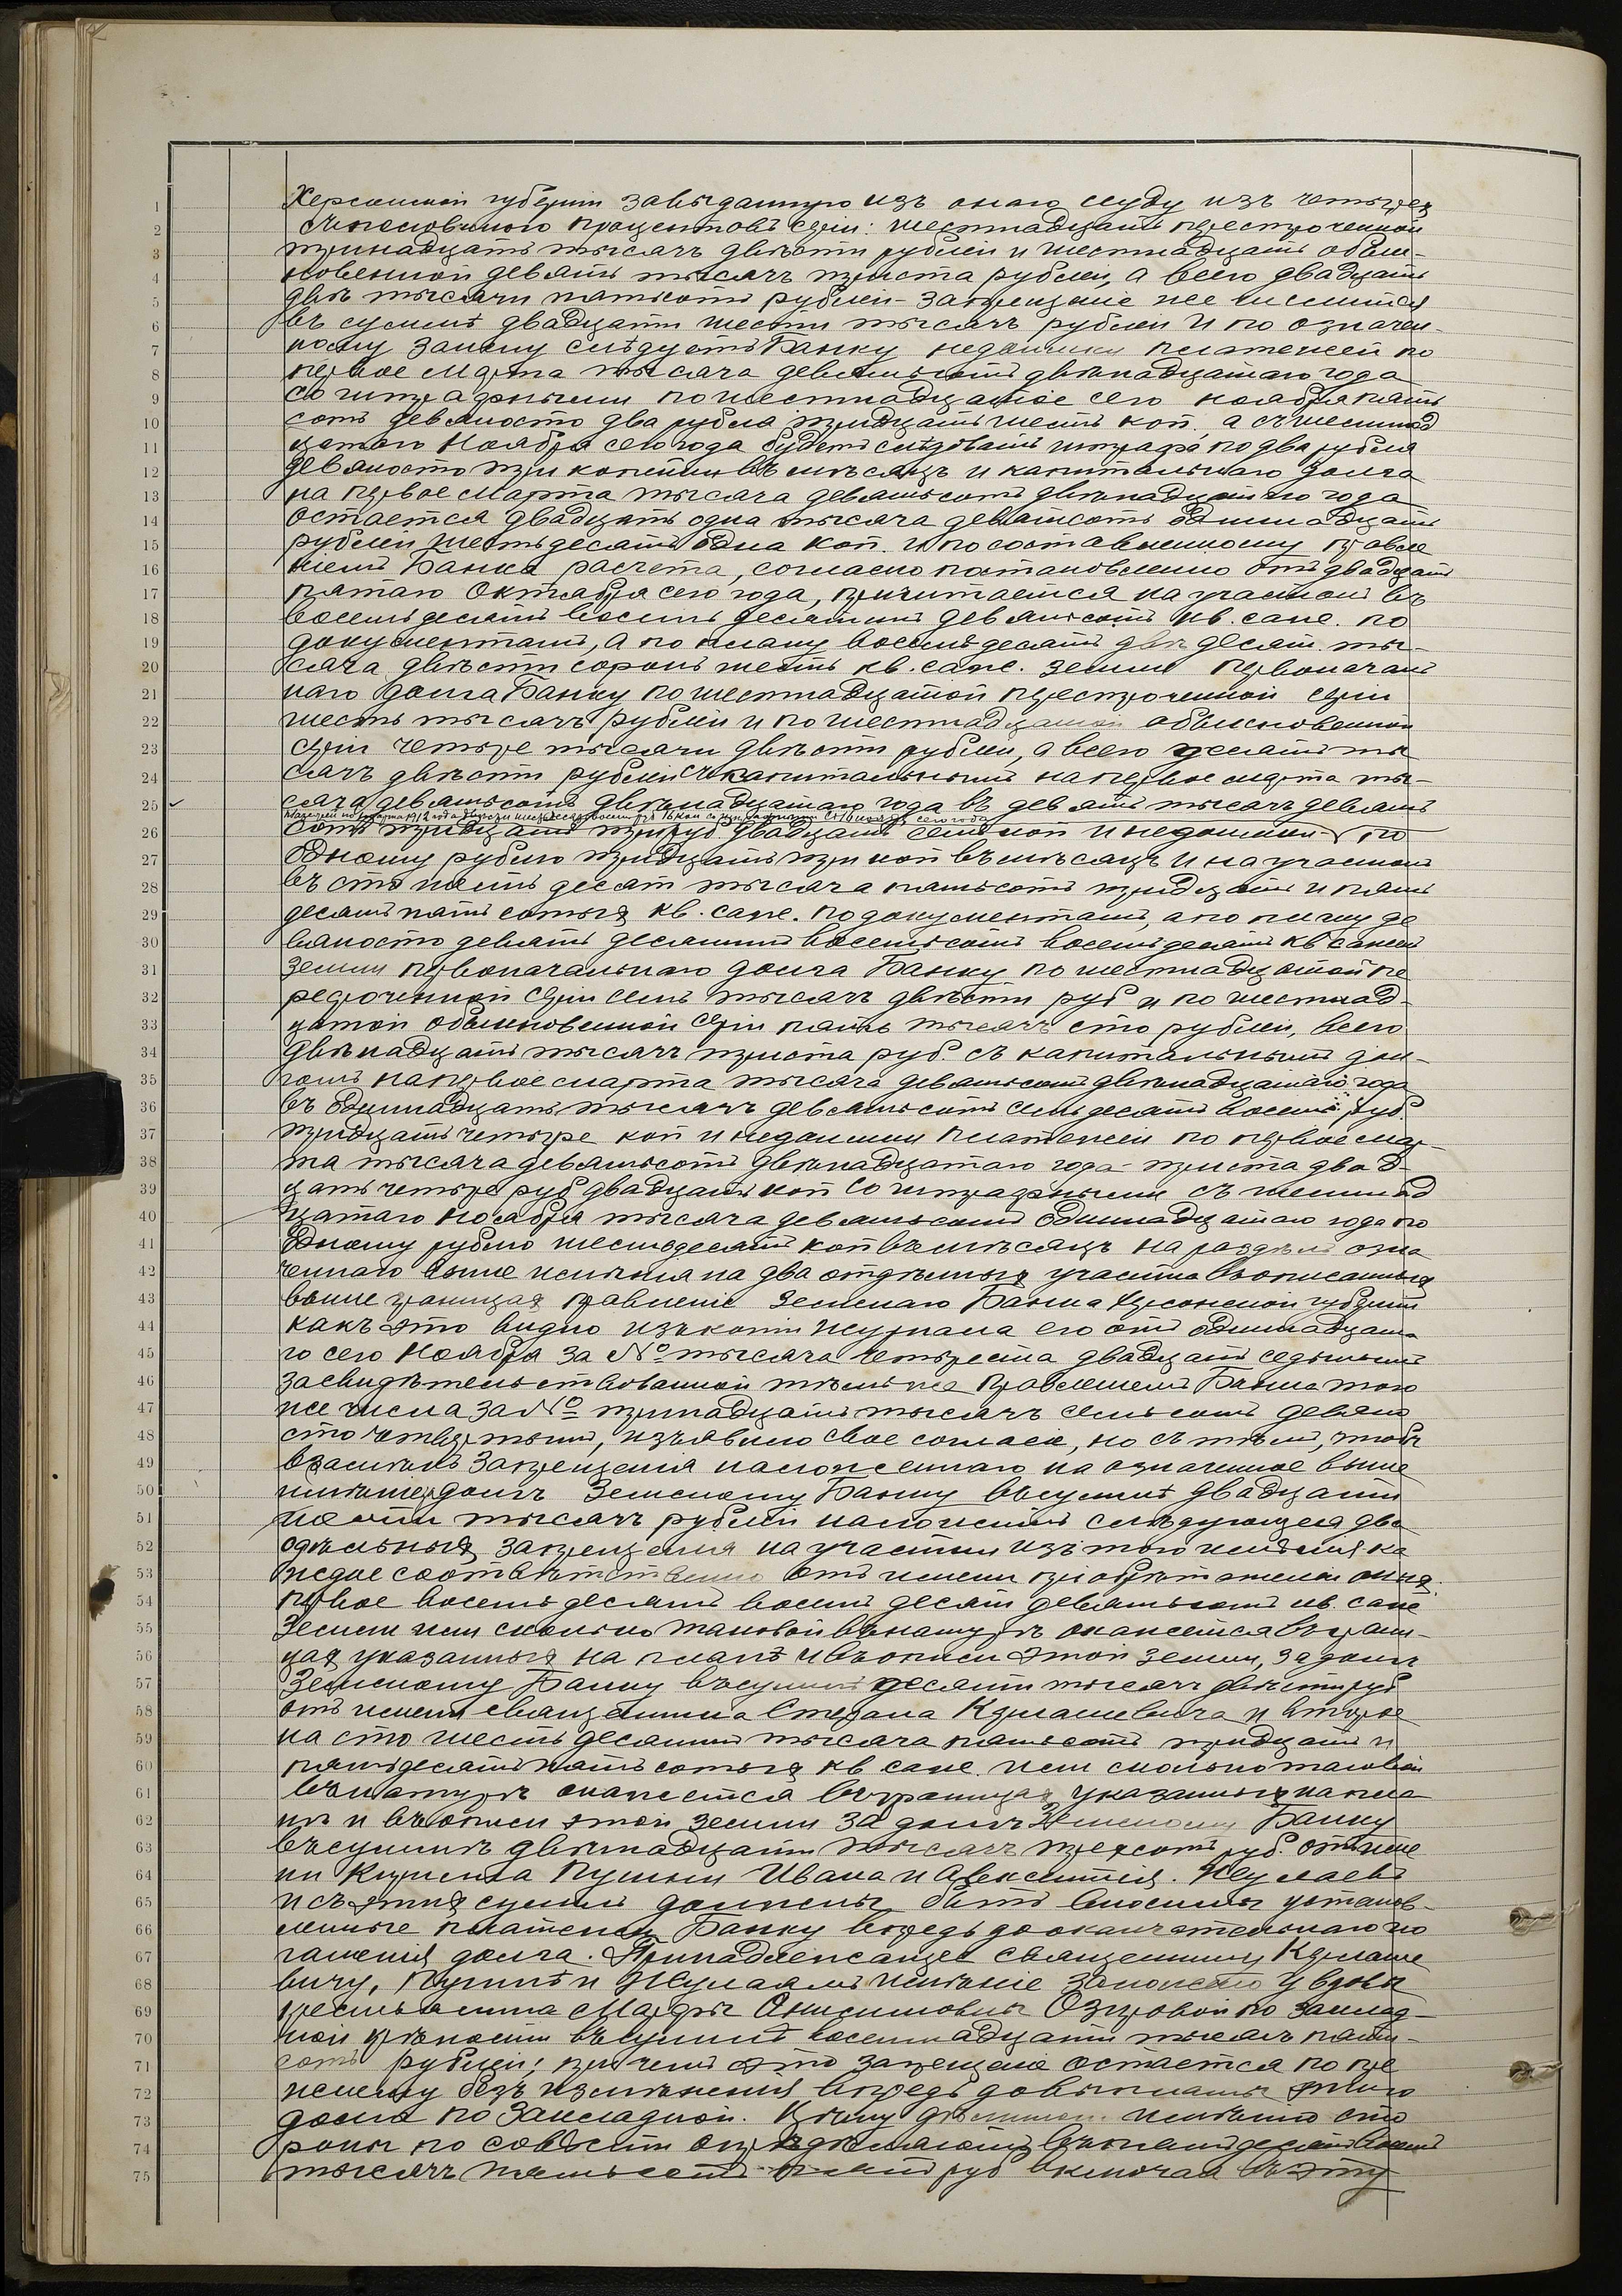 1 Херсонской губернiи за выданную изъ онаго ссуду изъ четырехъ
2 съ половиною процентовъ серiи: шестнадцатой пересроченной
3 тринадцать тысячъ двѣсти рублей и шестнадцатой обык-
4 новенной девять тысячъ триста рублей, а всего двадцать
5 двѣ тысячи пятьсотъ рублей – запрещенiе же числится
6 въ суммѣ двадцати шести тысячъ рублей и по означен-
7 ному займу слѣдуетъ Банку недоимки платежей по
8 первое Марта тысяча девятьсотъ двѣнадцатаго года
9 со штрафными по шестнадцатое сего ноября пять
10 сотъ девяносто два рубля тридцать шесть коп. а съ шестнад
11 цатаго Ноября сего года будетъ слѣдовать штрафъ по два рубля
12 девяносто три копейки въ мѣсяцъ и капитальнаго долга
13 на первое Марта тысяча девятьсотъ двѣнадцатаго года
14 остается двадцать одна тысяча девятьсотъ одиннадцать
15 рублей шестьдесятъ одна коп. и по составленному правле
16 нiемъ Банка расчета, согласно постановленiю отъ двадцать
17 пятаго Октября сего года, причитается на участокъ въ
18 восемьдесятъ восемь десятинъ девятьсотъ кв. саж. по
19 документамъ, а по плану восемьдесятъ двѣ десят. ты-
20 сяча двѣсти сорокъ шесть кв. саж. земли первоначаль
21 наго долга Банку по шестнадцатой пересроченной серiи
22 шесть тысячъ рублей и по шестнадцатой обыкновенной
23 серiи четыре тысячи двѣсти рублей, а всего десять ты
24 сячъ двѣсти рублей съ капитальнымъ на первое марта ты-
25 сяча девятьсотъ двѣнадцатаго года въ девять тысячъ девять
сего года
26 сотъ тридцать три руб. двадцать семь коп и недоимки – по
27 одному рублю тридцать три коп въ мѣсяцъ и на участокъ
28 въ сто шесть десят тысяча пятьсотъ тридцать и пять
29 десятъ пять сотыхъ кв. саж. по документамъ, а по плану де
30 вяносто девять десятинъ восемьсотъ восемьдесятъ кв сажен
31 земли первоначальнаго долга Банку по шестнадцатой пе
32 ресроченной серiи семь тысячъ двѣсти руб и по шестнад-
33 цатой обыкновенной серiи пять тысячъ сто рублей, всего
34 двѣнадцать тысячъ триста руб. съ капитальнымъ дол-
35 гомъ на первое марта тысяча девятьсотъ двѣнадцатаго года
36 въ одиннадцать тысячъ девятьсотъ семьдесятъ восемь руб.
37 тридцать четыре коп и недоимки платежей по первое мар-
38 та тысяча девятьсотъ двѣнадцатаго года – триста двад-
39 цать четыре руб двадцать коп со штрафными съ шестнад
40 цатаго ноября тысяча девятьсотъ одиннадцатаго года по
41 одному рублю шестьдесятъ коп въ мѣсяцъ на раздѣлъ озна
42 ченнаго выше имѣнiя на два отдѣльныхъ участка въ описанныхъ
43 выше границахъ правленiе Земскаго Банка Херсонской губернiи
44 какъ это видно изъ копiи журнала его отъ одиннадцата
45 го сего Ноября за № тысяча четыреста двадцать седьмымъ
46 засвидѣтельствованной тѣмъ же Правленiемъ Банка того
47 же числа за № тринадцать тысячъ семьсотъ девяно
48 сто четвертымъ, изъявило свое согласiе, но съ тѣмъ, чтобы
49 взамѣнъ запрещенiя наложеннаго на означенное выше
50 имѣнiе, долгъ Земскому Банку въ суммѣ двадцати
51 шести тысячъ рублей наложены слѣдующiя два
52 отдѣльныхъ запрещенiя на участки изъ того имѣнiя ка
53 ждое соотвѣтственно отъ имени прiобрѣтателя онаго
54 первое восемьдесятъ восемь десят девятьсотъ кв. саж
55 земли или сколько таковой въ натурѣ окажется въ грани-
56 цахъ указанныхъ на планѣ и въ описи этой земли, за долгъ
57 Земскому Банку въ суммѣ десяти тысячъ двѣсти руб
58 отъ имени священника Стефана и второе
59 на сто шесть десятинъ тысяча пятьсотъ тридцать и
60 пятьдесятъ пять сотыхъ кв саж. или сколько таковой
61 въ натурѣ окажется въ границахъ указанныхъ на пла
62 нѣ и въ описи этой земли за долгъ Земскому Банку
63 въ суммѣ двѣнадцати тысячъ трехсотъ руб. отъ име
64 ни Кирилла Пушки Ивана и Авксентiя
65 и съ этихъ суммъ должны быть вносимы установ-
66 ленные платежи Банку впредь до окончательнаго по
67 гашенiя долга. Принадлежащее священнику
68 вичу, Пушкѣ и имѣнiе заложено у вдовы
69 крестьянина Марфы Анисимовны Озеровой по заклад-
70 ной крѣпости въ суммѣ восемнадцати тысячъ пять-
71 сотъ рублей; при чемъ это запрещенiе остается по пре
72 жнему безъ измѣненiя впредь до выплаты этого
73 долга по закладной. Цѣну дѣлимому имѣнiю сто
74 роны по совѣсти опредѣляютъ въ пятьдесятъ восемь
75 тысячъ пятьсотъ руб включая въ эту